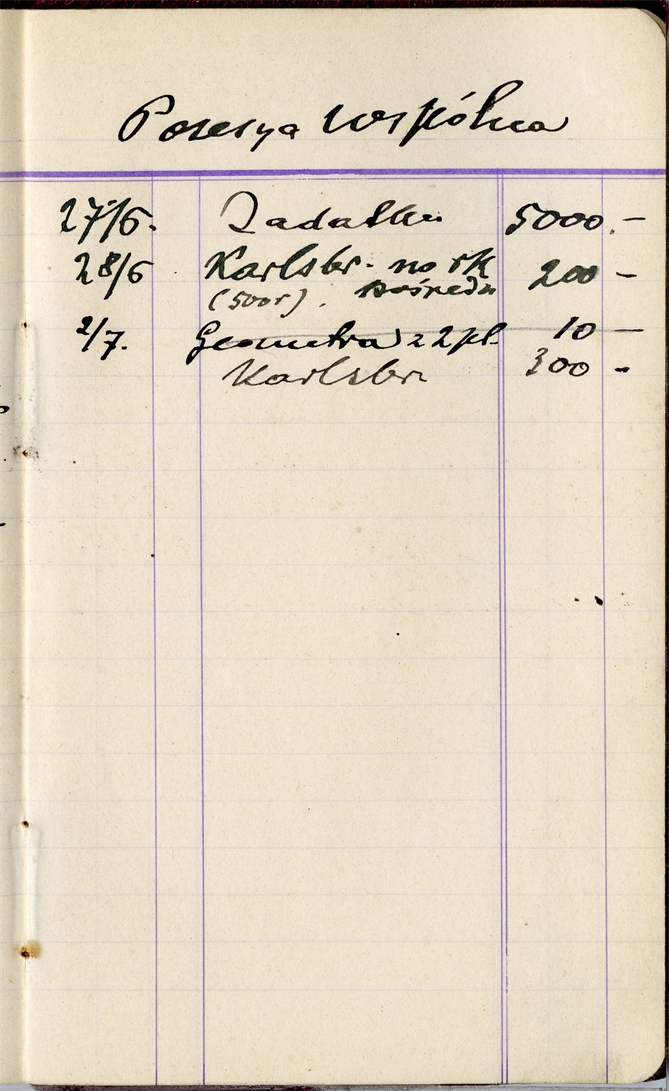 Posesya Wspólna
27/6. Zadatku 5000.-
28/6 Karlsbr. na rk 200 -
(500r). pośredn
2/7. Geometra z 2 pl. 10 -
Karlsbr 300 -